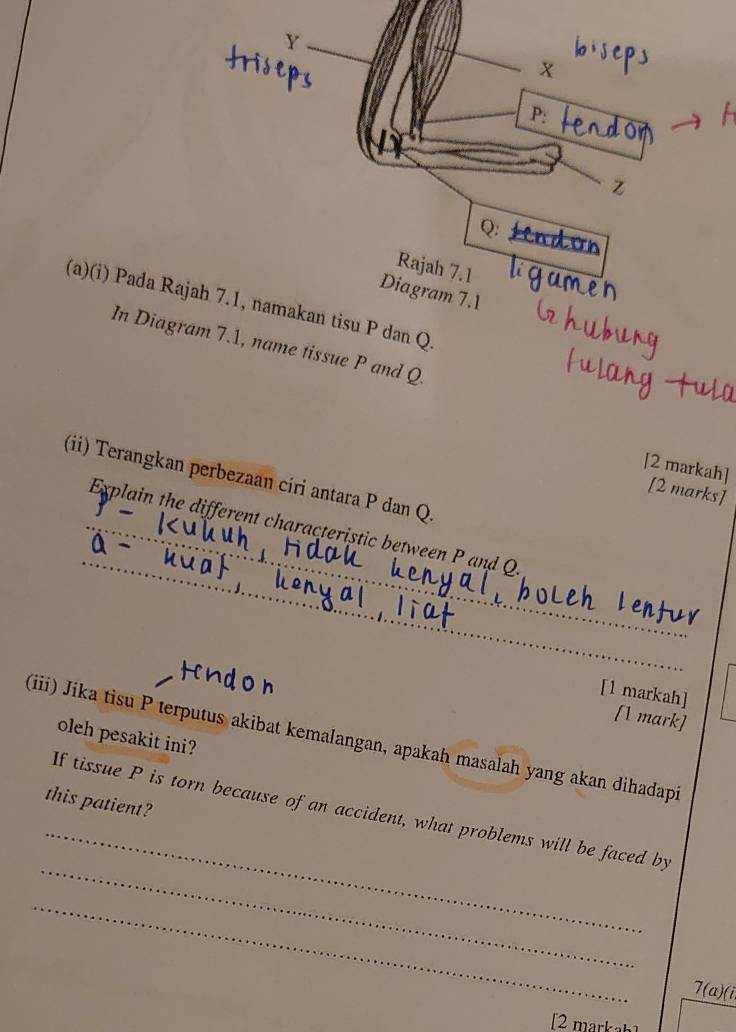 Y
triseps
biseps
X
P: tendon →
Z
Q: tendon
ligamen
Rajah 7.1
Diagram 7.1
hubung
tulang - tula
(a)(i) Pada Rajah 7.1, namakan tisu P dan Q.
In Diagram 7.1, name tissue P and Q.
[2 markah]
[2 marks]
(ii) Terangkan perbezaan ciri antara P dan Q.
Explain the different characteristic between P and Q.
P - kukuh, tidak kenyal, boleh lentur
Q - kuat, kenyal, liat
[1 markah]
[1 mark]
tendon
(iii) Jika tisu P terputus akibat kemalangan, apakah masalah yang akan dihadapi
oleh pesakit ini?
If tissue P is torn because of an accident, what problems will be faced by
this patient?
7(a)(i
[2 markah]